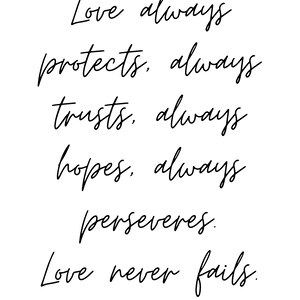 Love always
protects, always
trusts, always
hopes, always
perseveres.
Love never fails.